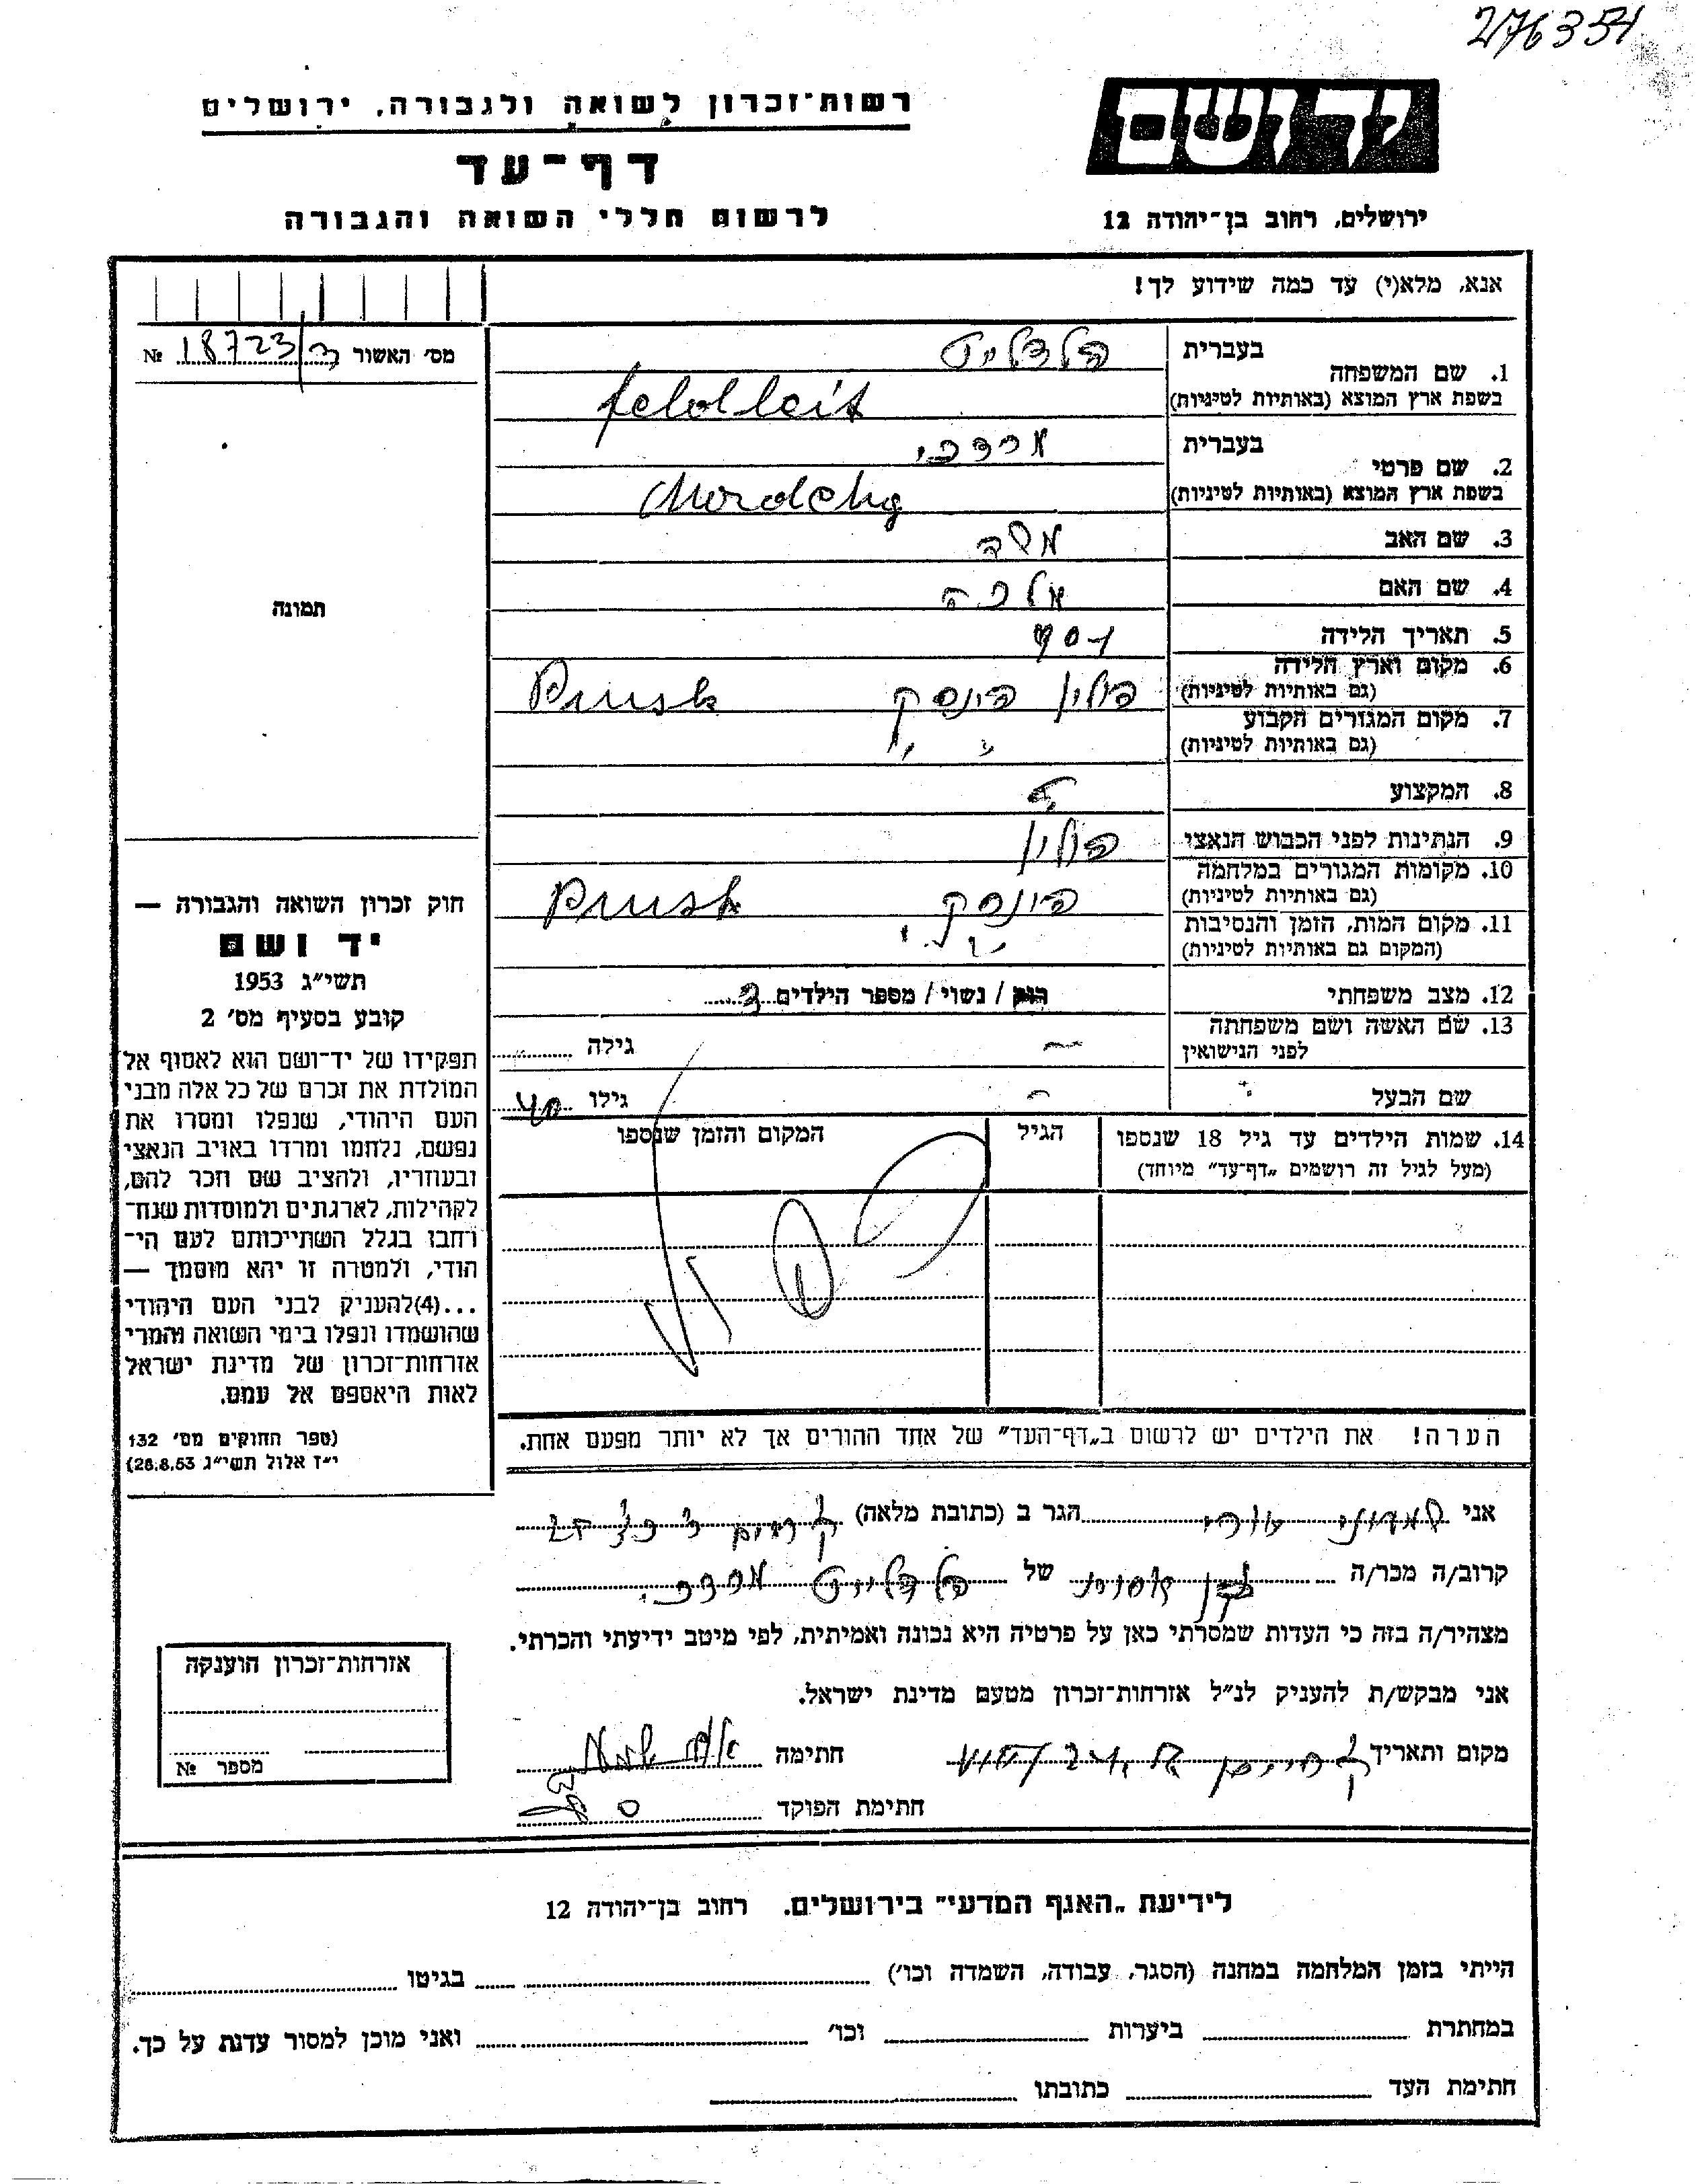 276354
רשות־זכרון לשואה ולגבורה, ירושלים
יד ושם
דף־עד
לרשום חללי השואה והגבורה
ירושלים, רחוב בן־יהודה 12
אנא, מלא(י) עד כמה שידוע לך!
מס׳ האשור 18723/3 №
תמונה
1. שם המשפחה
בעברית פלדלייט
בשפת ארץ המוצא (באותיות לטיניות) feldleit
2. שם פרטי
בעברית מרדכי
בשפת ארץ המוצא (באותיות לטיניות)
3. שם האב משה
4. שם האם מלכה
5. תאריך הלידה
6. מקום וארץ הלידה
(גם באותיות לטיניות) פולין פינסק Pinsk
7. מקום המגורים הקבוע
(גם באותיות לטיניות) " "
8. המקצוע
9. הנתינות לפני הכבוש הנאצי פולין
10. מקומות המגורים במלחמה
(גם באותיות לטיניות) פינסק Pinsk
11. מקום המות, הזמן והנסיבות
(המקום גם באותיות לטיניות) " "
12. מצב משפחתי רווק / נשוי / מספר הילדים 3
13. שם האשה ושם משפחתה
לפני הנישואין — גילה
שם הבעל — גילו 40
14. שמות הילדים עד גיל 18 שנספו
(מעל לגיל זה רושמים „דף־עד״ מיוחד)
הגיל
המקום והזמן שנספו
הערה! את הילדים יש לרשום ב„דף־העד״ של אחד ההורים אך לא יותר מפעם אחת.
חוק זכרון השואה והגבורה —
יד ושם
תשי״ג 1953
קובע בסעיף מס׳ 2
תפקידו של יד־ושם הוא לאסוף אל
המולדת את זכרם של כל אלה מבני
העם היהודי, שנפלו ומסרו את
נפשם, נלחמו ומרדו באויב הנאצי
ובעוזריו, ולהציב שם וזכר להם,
לקהילות, לארגונים ולמוסדות שנח־
רבו בגלל השתייכותם לעם הי־
הודי, ולמטרה זו יהא מוסמך —
...(4)להעניק לבני העם היהודי
שהושמדו ונפלו בימי השואה והמרי
אזרחות־זכרון של מדינת ישראל
לאות היאספם אל עמם.
(ספר החוקים מס׳ 132
י״ז אלול תשי״ג 28.8.53)
אני הגר ב (כתובת מלאה)
קרוב/ה מכר/ה של פלדלייט מרדכי
מצהיר/ה בזה כי העדות שמסרתי כאן על פרטיה היא נכונה ואמיתית, לפי מיטב ידיעתי והכרתי.
אני מבקש/ת להעניק לנ״ל אזרחות־זכרון מטעם מדינת ישראל.
מקום ותאריך חתימה
חתימת הפוקד
אזרחות־זכרון הוענקה
מספר №
לידיעת „האגף המדעי״ בירושלים. רחוב בן־יהודה 12
הייתי בזמן המלחמה במחנה (הסגר, עבודה, השמדה וכו׳) בגיטו
במחתרת ביערות וכו׳ ואני מוכן למסור עדות על כך.
חתימת העד כתובתו